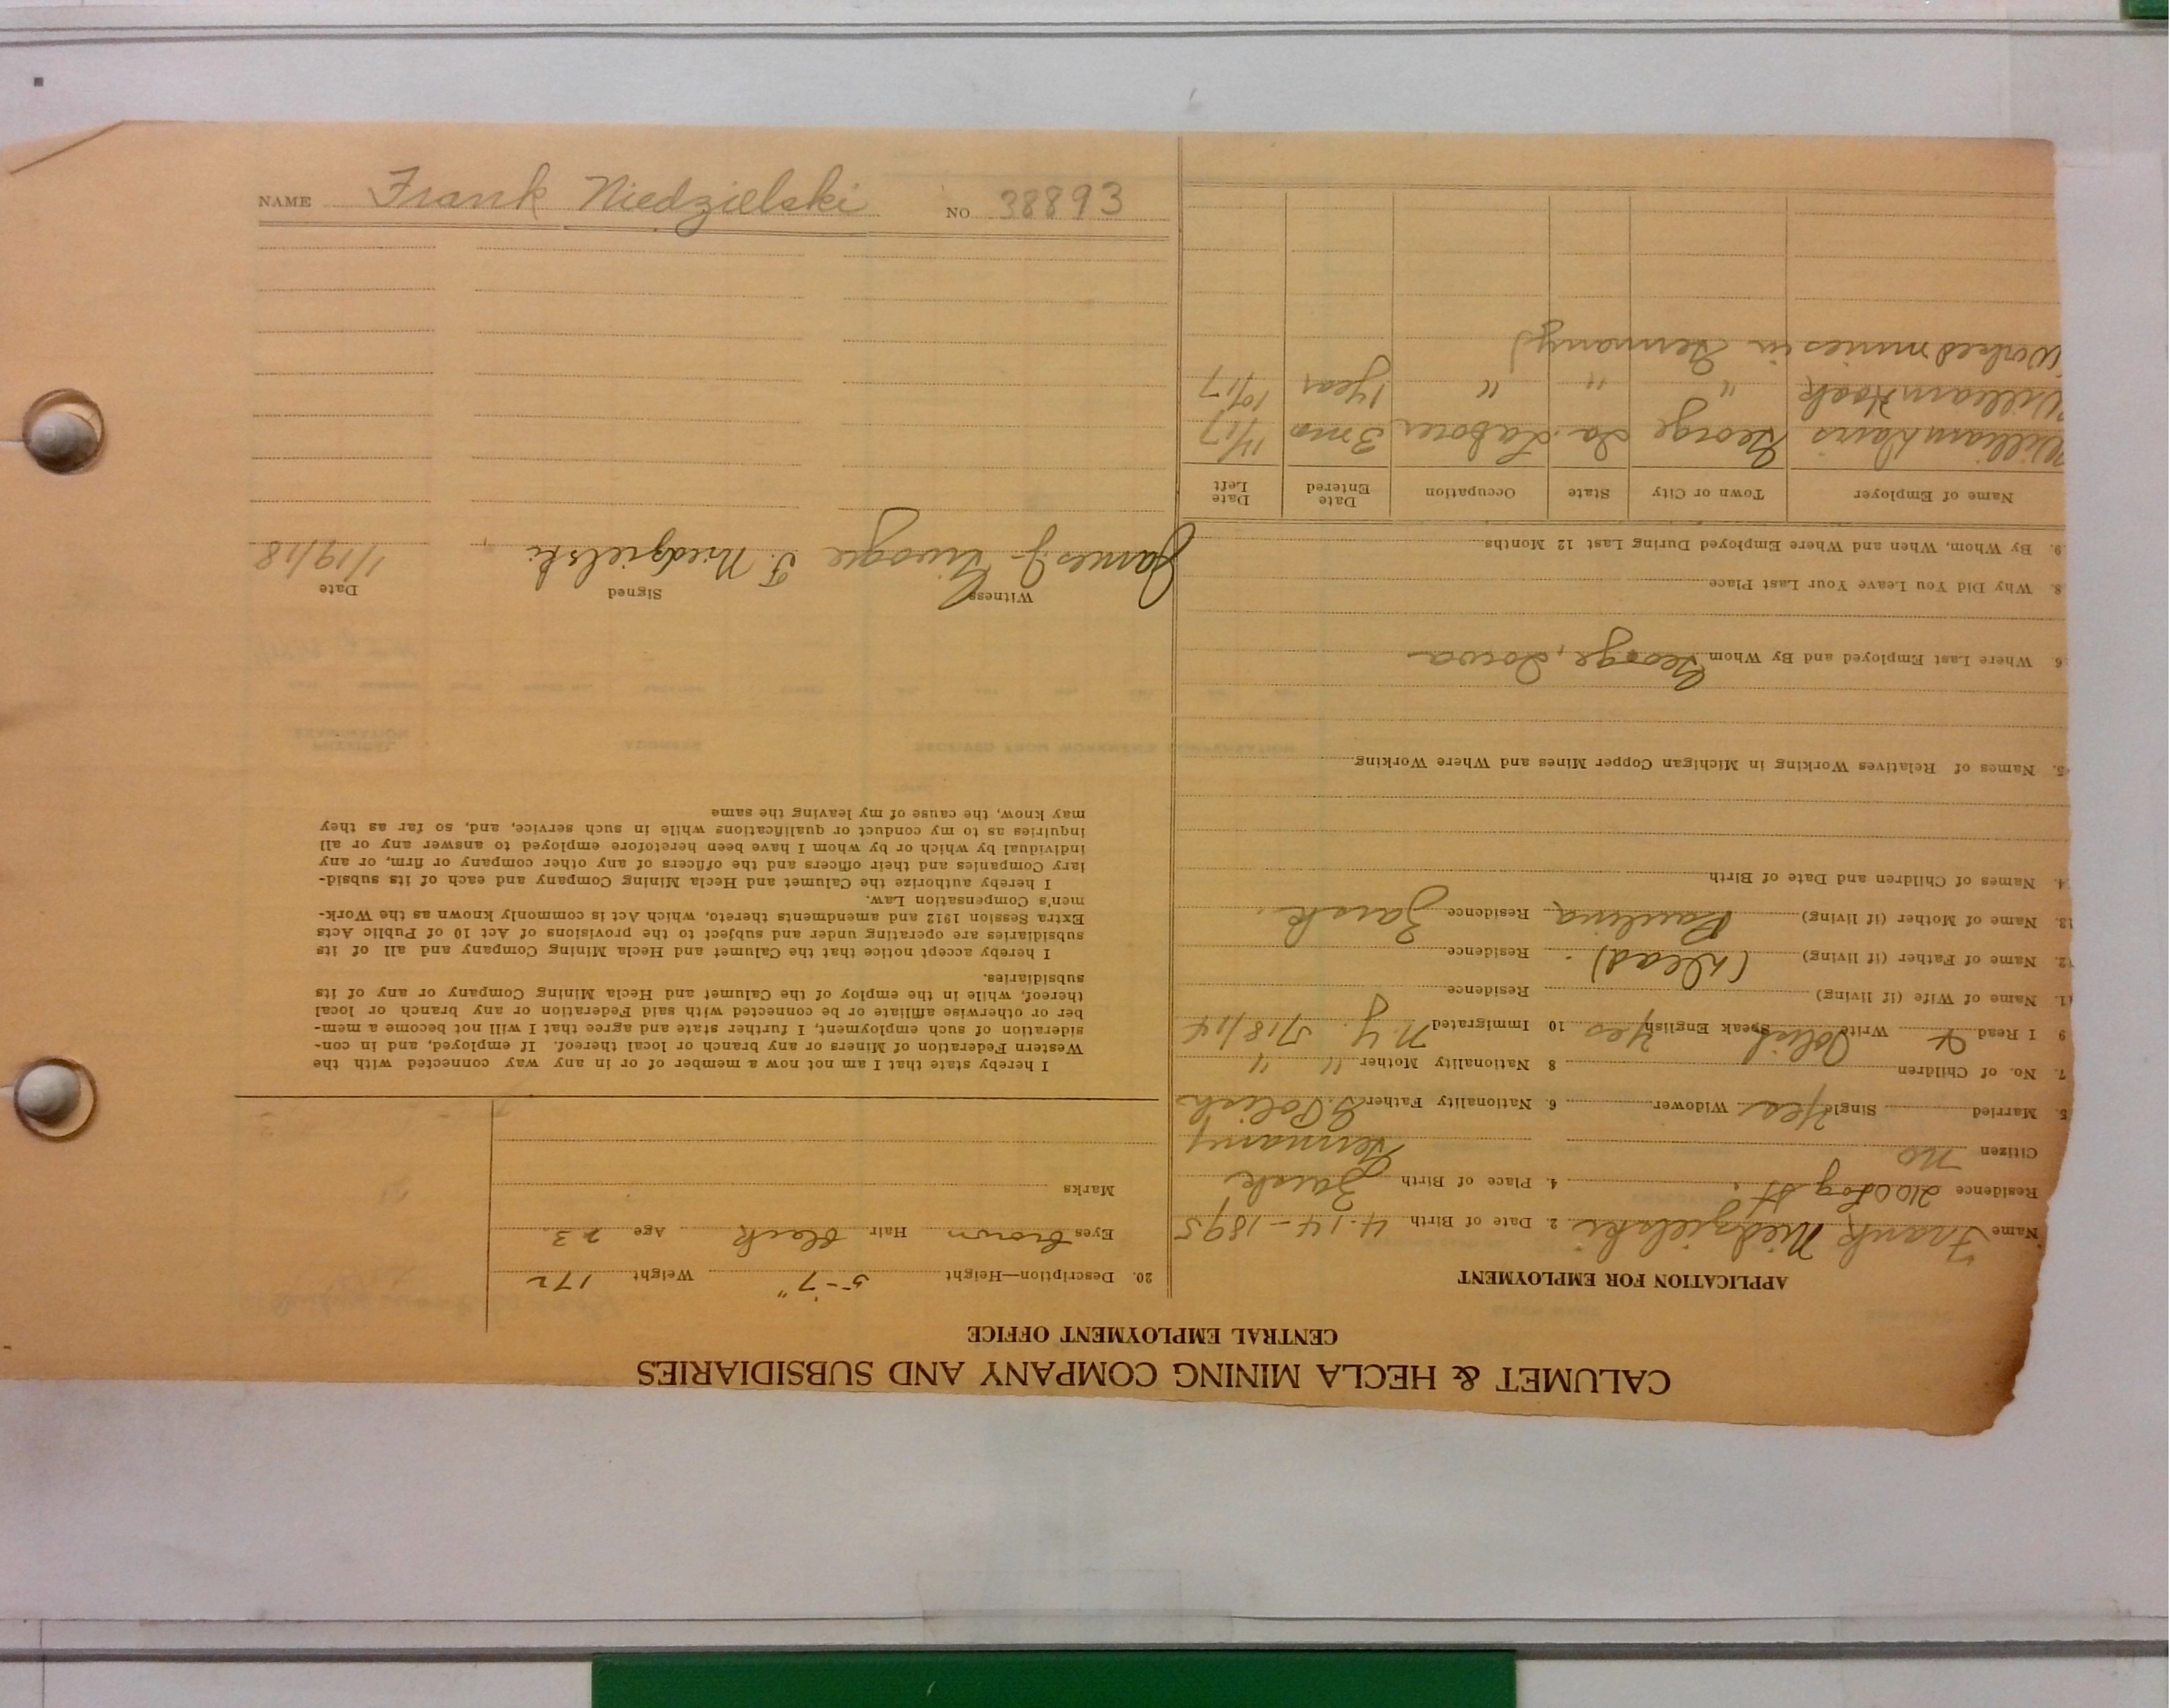 CALUMET & HECLA MINING COMPANY AND SUBSIDIARIES
CENTRAL EMPLOYMENT OFFICE
APPLICATION FOR EMPLOYMENT
Name Frank Niedzielski 2. Date of Birth 4-14-1895
Residence 210 Log St. 4. Place of Birth Zaisk
Citizen no Germany
5. Married Single Yes Widower 6. Nationality Father G Polish
7. No. of Children 8 Nationality Mother " "
9 I Read & Write Polish Speak English Yes 10 Immigrated N.Y. 5/18/14
11. Name of Wife (if living) Residence
12. Name of Father (if living) (Dead) Residence
13. Name of Mother (if living) Paulina Residence Zaisk
14. Names of Children and Date of Birth
15. Names of Relatives Working in Michigan Copper Mines and Where Working
16 Where Last Employed and By Whom George, Iowa
18. Why Did You Leave Your Last Place
19. By Whom, When and Where Employed During Last 12 Months
Name of Employer Town or City State Occupation Date Entered Date Left
William Davis George Ia Laborer 3 mo 11/17
William Hook " " " 1 year 10/17
(Worked mines in Germany)
20. Description—Height 5-7" Weight 172
Eyes brown Hair black Age 23
Marks
I hereby state that I am not now a member of or in any way connected with the
Western Federation of Miners or any branch or local thereof. If employed, and in con-
sideration of such employment, I further state and agree that I will not become a mem-
ber or otherwise affiliate or be connected with said Federation or any branch or local
thereof, while in the employ of the Calumet and Hecla Mining Company or any of its
subsidiaries.
I hereby accept notice that the Calumet and Hecla Mining Company and all of its
subsidiaries are operating under and subject to the provisions of Act 10 of Public Acts
Extra Session 1912 and amendments thereto, which Act is commonly known as the Work-
men's Compensation Law.
I hereby authorize the Calumet and Hecla Mining Company and each of its subsid-
iary Companies and their officers and the officers of any other company or firm, or any
individual by which or by whom I have been heretofore employed to answer any or all
inquiries as to my conduct or qualifications while in such service, and, so far as they
may know, the cause of my leaving the same
Witness Signed Date
James J. F. Niedzielski 1/19/18
NAME Frank Niedzielski NO 38893